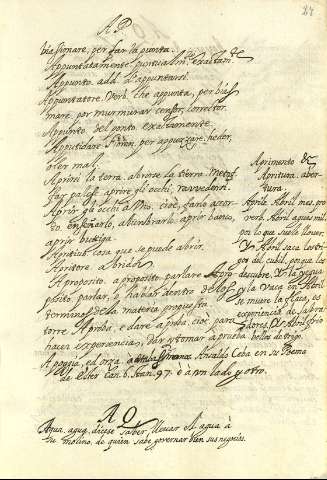 27
AP
passionare, per far la punta.
Appuntatamente puntualmte exactamte
Appunto. add. d'appuntarsi
Appuntatore. Verb. che appunta, per bias
mare, por murmurar censor, corrector.
Appunto del ponto exactamente
Apputidare. Sinon. per appuzzare, heder,
oler mal,
Aprirsi la terra. abrirse la terra. Metaf.
aprire gli occhi, ravvedersi.
Aprir gli occhi a Uno, cioè, farlo accor
to enseñarlo, alumbrarlo, aprir banco,
aprir bottega
cosa que se puede abrir.
Apritore Abridor
A proposito. a proposito parlare
posito parlar, o hablar dentro de los
terminos de la materia propuesta
torre A proba, e dare a proba, cioè, para
hacer experiencia, dar y tomar a prueba
A poggia, ed orza. Ansaldo Ceba en su Poema
de Ester Can. 6. Stan. 97. è a un lado y otro.
Aprimento de
Apritura. aber
tura.
Aprile Abril mes, pro
verb. Abril aguas mil
por lo que suele llover.
Y Abril saca los tri
gos del cubil, porque les
descubre. Y la
y la vaca en Abril
se muere la flaca, es
experiencia de labra
dores. Y Abril frio
bellos de trigo.
AQ
Aqua. agua, dicese saber llevar el agua à
su molino, de quien sabe governar bien sus negocios.